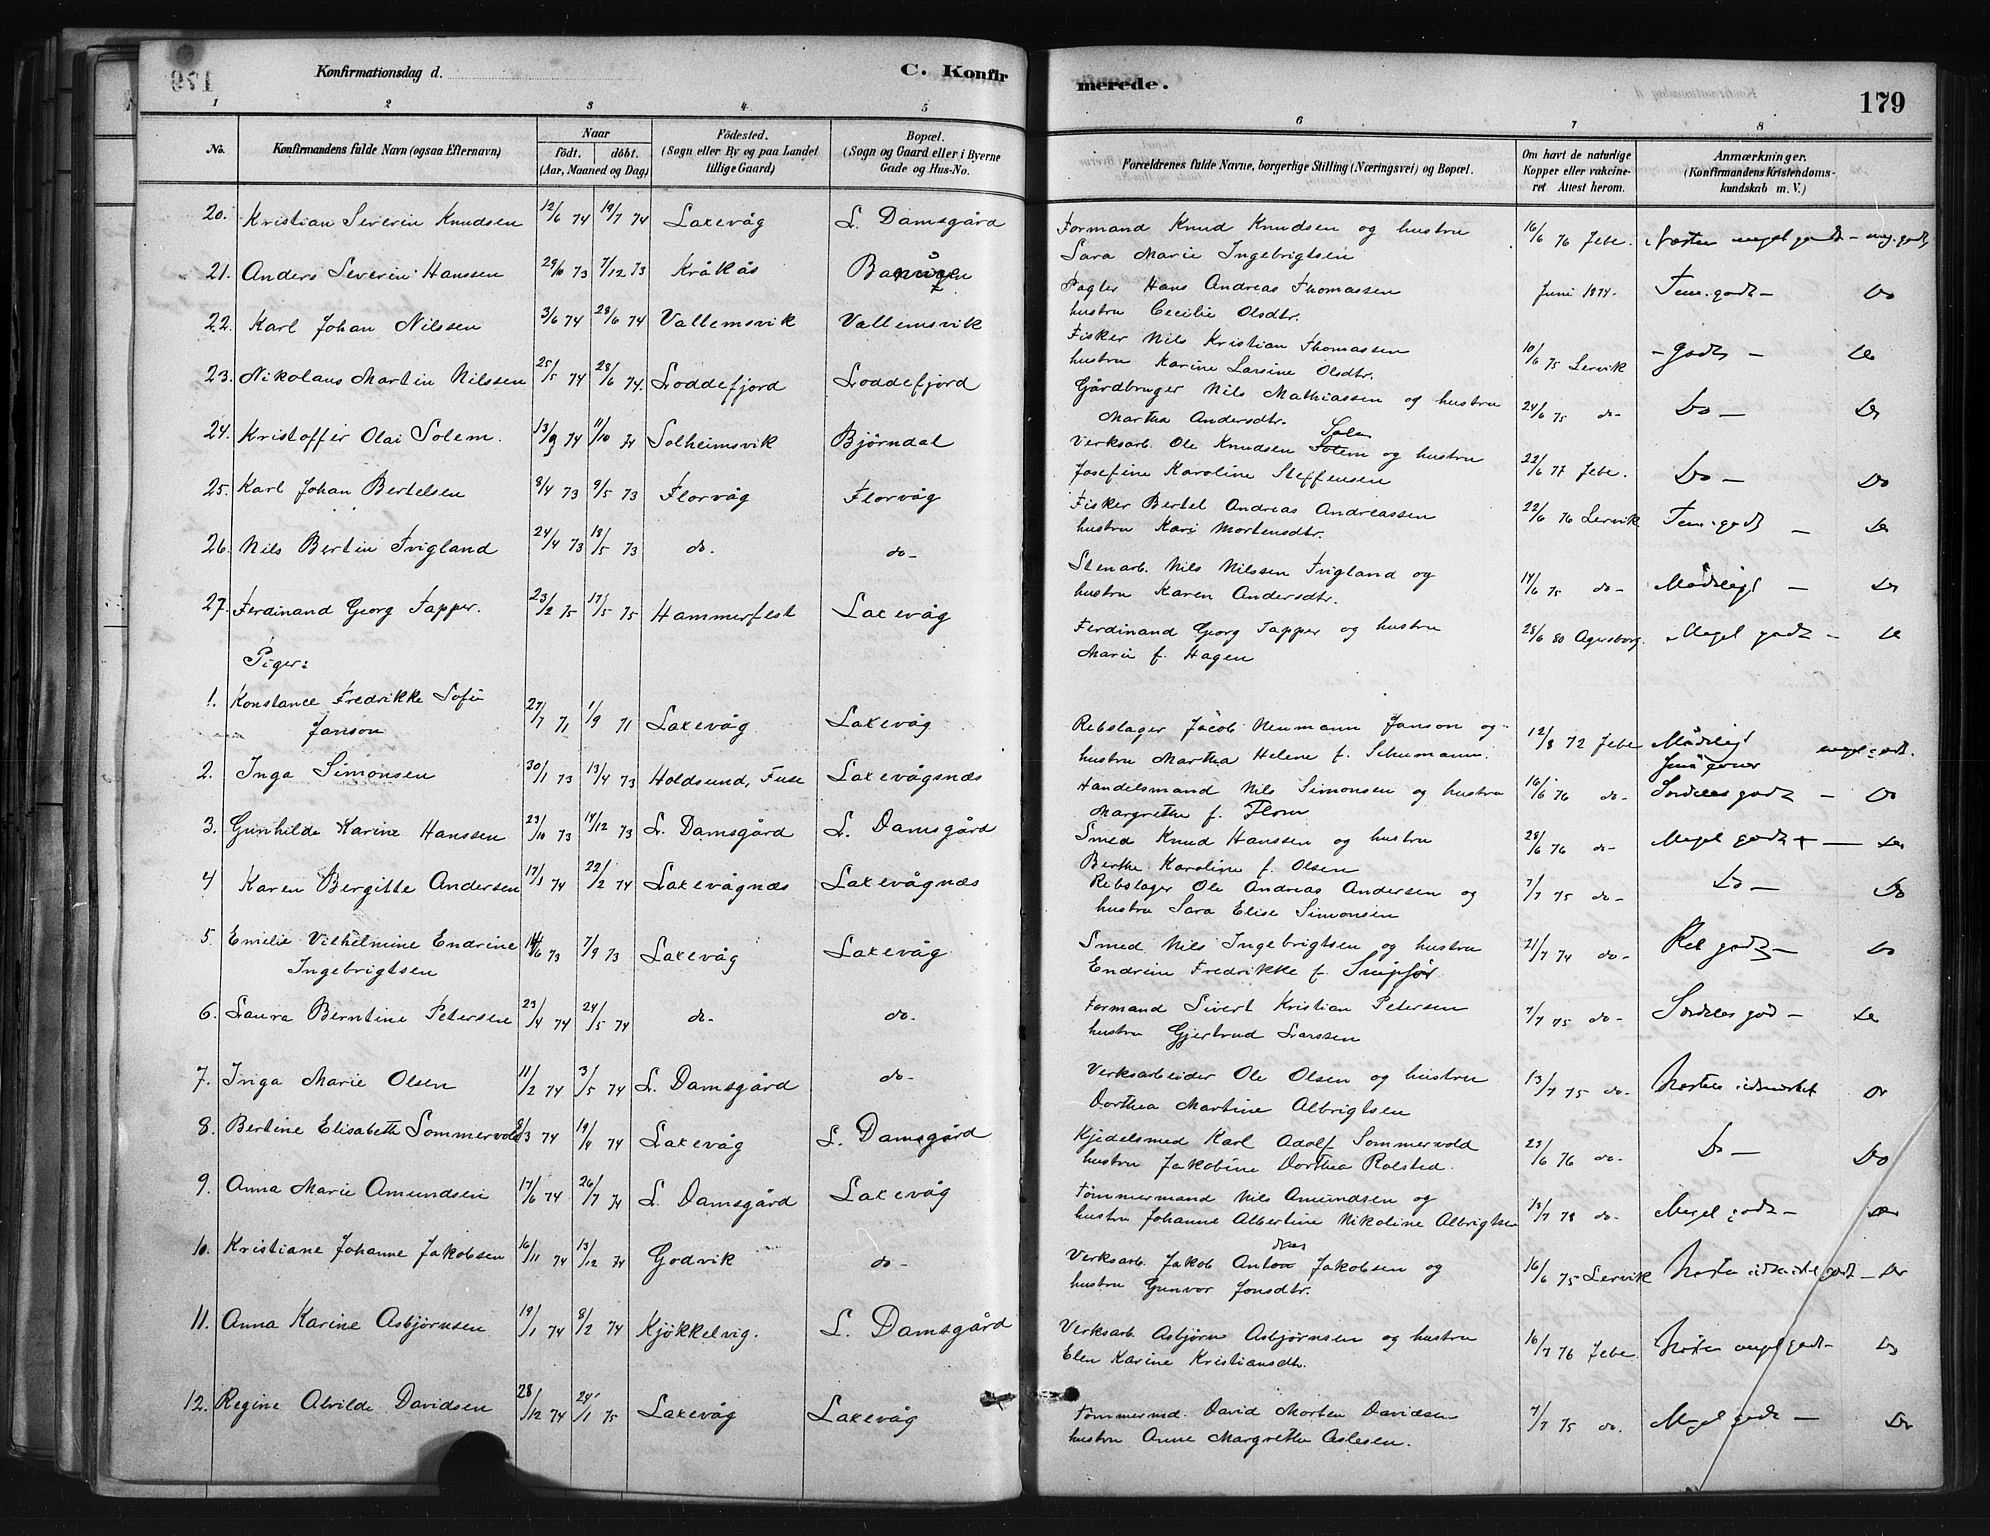 Konfirmationsdag d. C. Konfirmerede. 179
1 2 3 4 5 6 7 8
No. Konfirmandens fulde Navn (ogsaa Efternavn) Naar födt. döbt. (Aar, Maaned og Dag) Födested. (Sogn eller By og paa Landet tillige Gaard) Bopæl. (Sogn og Gaard eller i Byerne Gade og Hus-No. Forældrenes fulde Navne, borgerlige Stilling (Næringsvei) og Bopæl. Om havt de naturlige Kopper eller vakcineret. Attest herom. Anmærkninger. (Konfirmandens Kristendomskundskab m. V.)
20. Kristian Severin Knudsen 12/6 74 19/7 74 Laxevåg L. Damsgård Formand Knud Knudsen og hustru 16/6 76 Jebe. Næsten meget godt - meg. godt
Sara Marie Ingebrigtsen
21. Anders Severin Hanssen 29/10 73 7/12 73 Kråkås Hans Andreas Thomassen Juni 1874. Tem. godt - Do
hustru Cecilie Olsdtr.
22. Karl Johan Nilssen 3/6 74 28/6 74 Vallemsvik Vallemsvik Fisker Nils Kristian Thomassen 10/6 75 Lervik - godt - Do
hustru Karine Larsine Olsdtr.
23. Nikolaus Martin Nilssen 25/5 74 28/6 74. Loddefjord Loddefjord Gårdbruger Nils Mathiassen og hustru 24/6 75 do- Do - Do
Martha Andersdtr.
24. Kristoffer Olai Solem. 13/9 74 11/10 74 Solheimsvik Bjørndal Verksarb. Ole Knudsen Solem og hustru 22/6 77 Jebe. Do - Do
Josefine Karoline Steffensen
25. Karl Johan Bertelsen 8/4 73 9/5 73 Florvåg Florvåg Fisker Bertel Andreas Andreassen 22/6 76 Lervik Tem. godt - Do
hustru Kari Mortensdtr.
26. Nils Bertin Tvigland 24/4 73 18/5 73 do. do- Stenarb. Nils Nilssen Tvigland og 14/6 75 do- Mådeligt - Do
hustru Karen Andersdtr.
27. Ferdinand Georg Tapper. 23/2 75 17/5 75 Hammerfest Laxevåg Ferdinand Georg Tapper og hustru 28/6 80 Meget godt - Do
Marie f. Hagen
Piger:
1. Konstance Fredrikke Sofie
Janson 27/7 71 1/9 71 Laxevåg Laxevåg Rebslager Jacob Neumann Janson og 12/8 72 Jebe Mådeligt meget godt.
hustru Martha Helene f. Schumann.
2. Inga Simonsen 30/1 73 13/4 73 Holdsund, Fuse Laxevågsnæs Handelsmand Nils Simonsen og hustru 16/6 76 do- Særdeles godt - Do
Margrethe f. Flom
3. Gunhilde Karine Hanssen 23/10 73 14/12 73 L. Damsgård L. Damsgård Smed Knud Hanssen og hustru 28/6 76 do- Meget godt - Do
Berthe Karoline f. Olsen
4 Karen Bergitte Andersen 17/1 74 22/2 74 Laxevågnæs Laxevågnæs Rebslager Ole Andreas Andersen og 7/7 75 do- Do - Do
hustru Sara Elise Simonsen
5. Emelie Vilhelmine Endrine
Ingebrigtsen 14/6 73 7/9 73 Laxevåg Laxevåg Smed Nils Ingebrigtsen og hustru 21/7 74 do- godt - Do
Endrine Fredrikke f.
6. Laura Berntine Petersen 23/4 74 24/5 74 do- do- Formand Sivert Kristian Petersen 7/7 75 do- Særdeles god - Do
hustru Gjertrud Larssen
7. Inga Marie Olsen 11/2 74 3/5 74 L. Damsgård do- Verksarbeider Ole Olsen og hustru 13/7 75 do- Næsten udmærket Do
Dorthea Martine Albrigtsen
8. Bertine Elisabeth Sommervold 8/3 74 19/4 74 Laxevåg L. Damsgård Kjedelsmed Karl Adolf Sommervold 23/6 76 do- Do - Do
hustru Jakobine Dorthea Rolsted.
9. Anna Marie Amundsen 17/6 74 26/7 74 L. Damsgård Laxevåg Tømmermand Nils Amundsen og 13/7 78 do- Meget godt - Do
hustru Johanne Albertine Nikoline Albrigtsen
10. Kristiane Johanne Jakobsen 16/11 74 13/12 74 Godvik do- Verksarb. Jakob Anton Jakobsen og 16/6 75 Lervik Næsten udmærket godt - Do
hustru Gunvor Jonsdtr.
11. Anna Karine Asbjørnsen 19/1 74 8/2 74 Kjøkkelvig. L. Damsgård Verksarb. Asbjørn Asbjørnsen og hustru 16/7 76 Jebe Næsten meget godt - Do
Elen Karine Kristiansdtr.
12. Regine Alvilde Davidsen 28/12 74 24/1 75 Laxevåg Laxevåg Tømmermd. David Morten Davidsen 7/7 75 do. Meget godt - Do
hustru Anne Margrethe Aslesen.